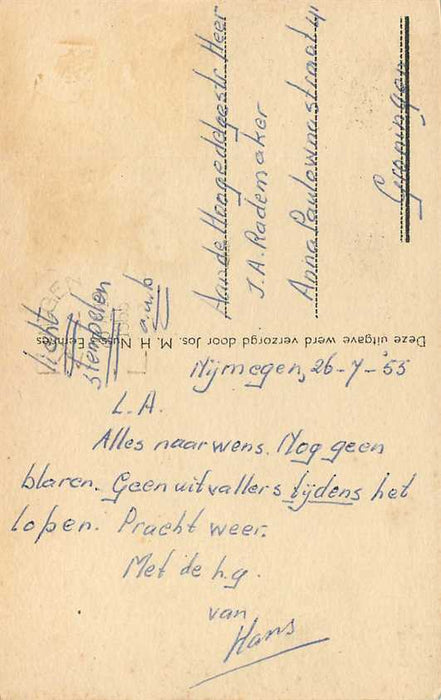 Nijmegen, 26-7-'55
L.A.
Alles naar wens. Nog geen
blaren. Geen uitvallers tijdens het
lopen. Pracht weer.
Met de h.g.
van
Hans
Aan de Hoogedelgestr. Heer
J.A. Rademaker
Anna Paulownastraat 41
Groningen
licht
stempelen
a.u.b
Deze uitgave werd verzorgd door Jos. M. H.